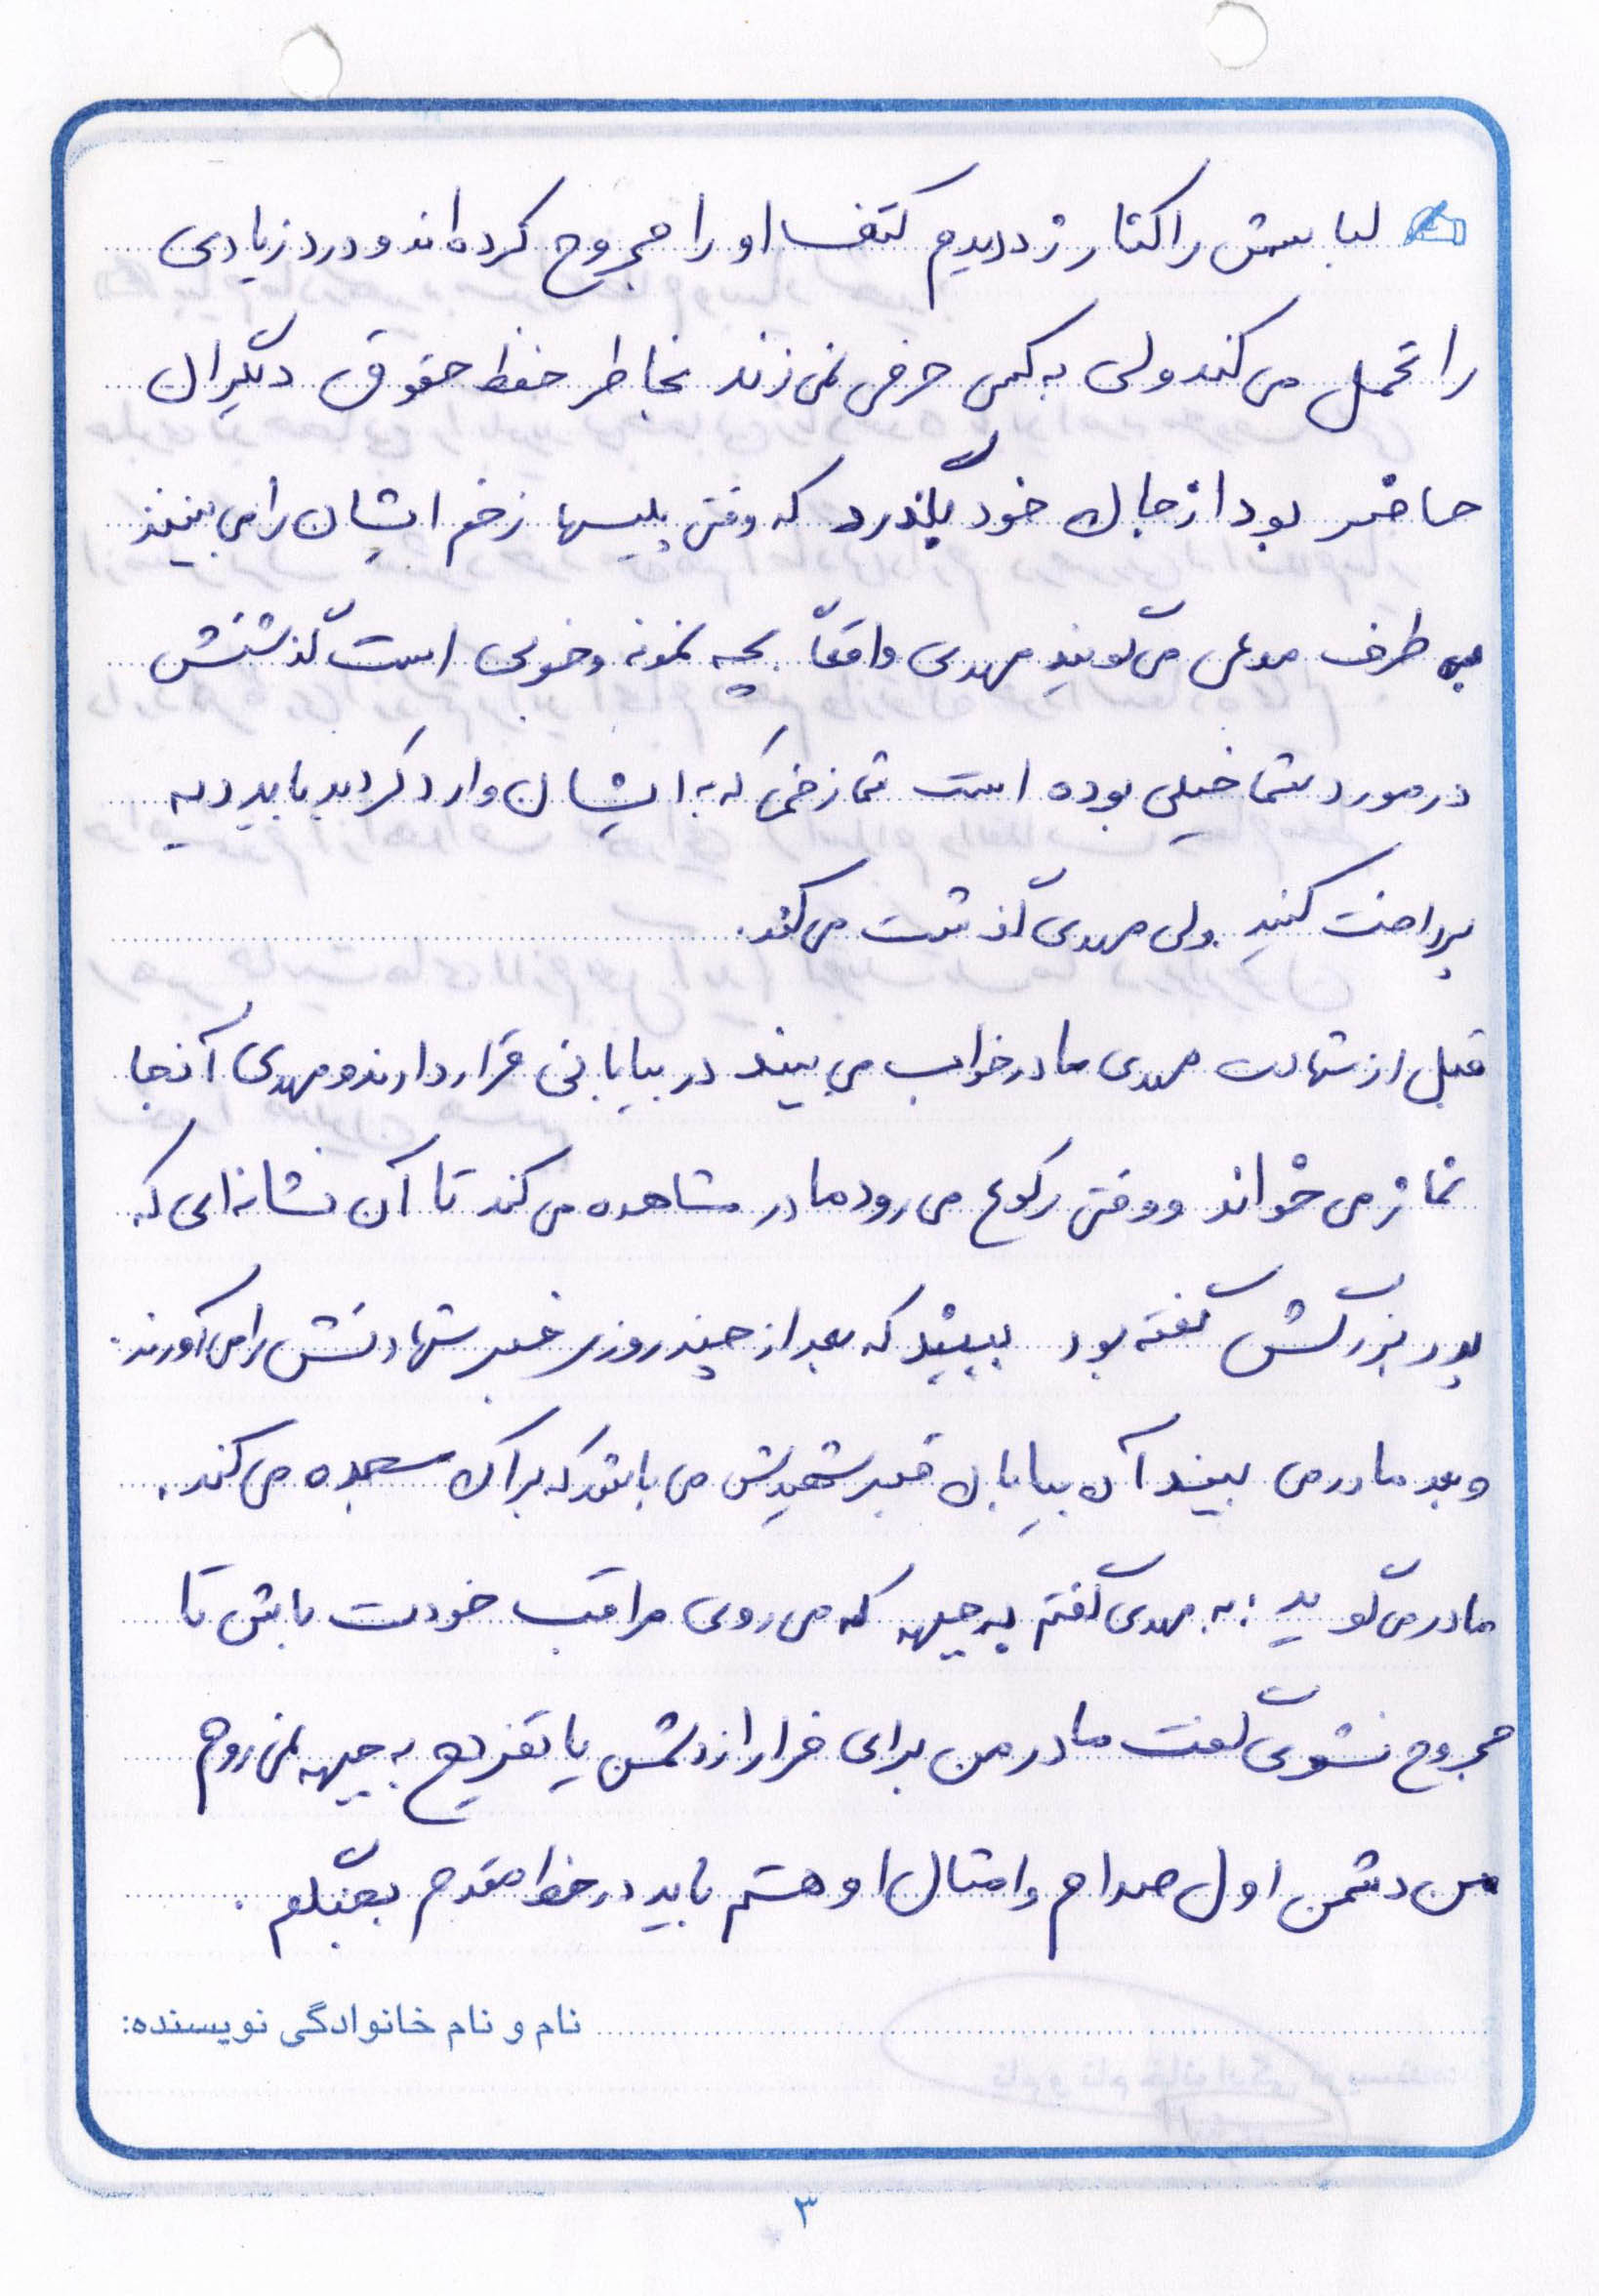 لباسش را کنار زد دیدم کتف او را مجروح کرده‌اند و درد زیادی
را تحمل می کند ولی به کسی حرفی نمی زند بخاطر حفظ حقوق دیگران
حاضر بود از جان خود بگذرد که وقتی پلیسها زخم ایشان را می بینند
به طرف مدعی می گویند مهدی واقعاً بچه نمونه و خوبی است گذشتش
در مورد شما خیلی بوده است شما زخمی که به ایشان وارد کردید باید دیه
پرداخت کنید ولی مهدی گذشت می کند.
قبل از شهادت مهدی مادر خواب می بیند در بیابانی قرار دارند و مهدی آنجا
نماز می خواند و وقتی رکوع می رود مادر مشاهده می کند تا آن نشانه‌ای که
پدر بزرگش گفته بود ببیند که بعد از چند روز خبر شهادتش را می آورند.
و بعد مادر می بیند آن بیابان قبر شهیدش می باشد که بر آن سجده می کند.
مادر می گوید: به مهدی گفتم به جبهه که می روی مراقب خودت باش تا
مجروح نشوی گفت مادر من برای فرار از دشمن یا تفریح به جبهه نمی روم
من دشمن اول صدام و امثال او هستم باید در خط مقدم بجنگم.
نام و نام خانوادگی نویسنده:
۳